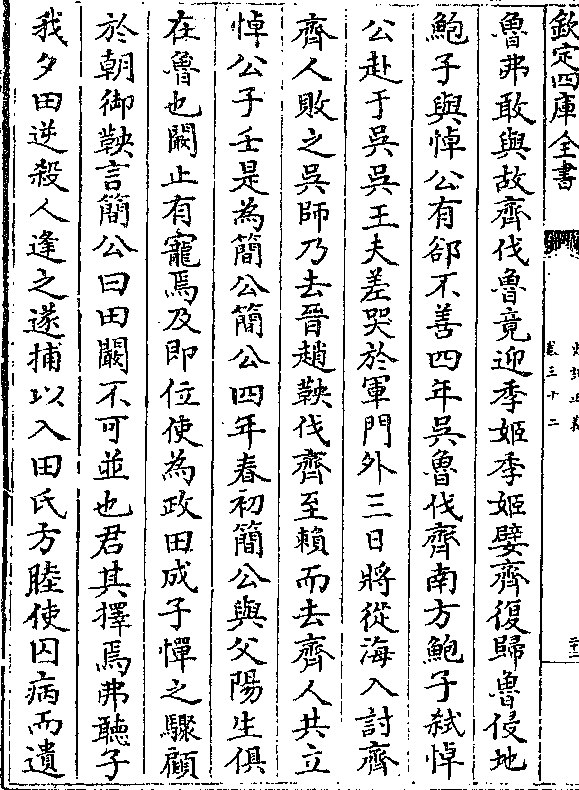 欽定四庫全書
史記正義
卷三十二
魯弗敢與故齊伐魯竟迎季姬季姬嬖齊復歸魯侵地
鮑子與悼公有郤不善四年吳魯伐齊南方鮑子弑悼
公赴于吳吳王夫差哭於軍門外三日將從海入討齊
齊人敗之吳師乃去晉趙鞅伐齊至賴而去齊人共立
悼公子壬是為簡公簡公四年春初簡公與父陽生俱
在魯也闞止有寵焉及即位使為政田成子憚之驟顧
於朝御鞅言簡公曰田闞不可並也君其擇焉弗聽子
我夕田逆殺人逢之遂捕以入田氏方睦使囚病而遺